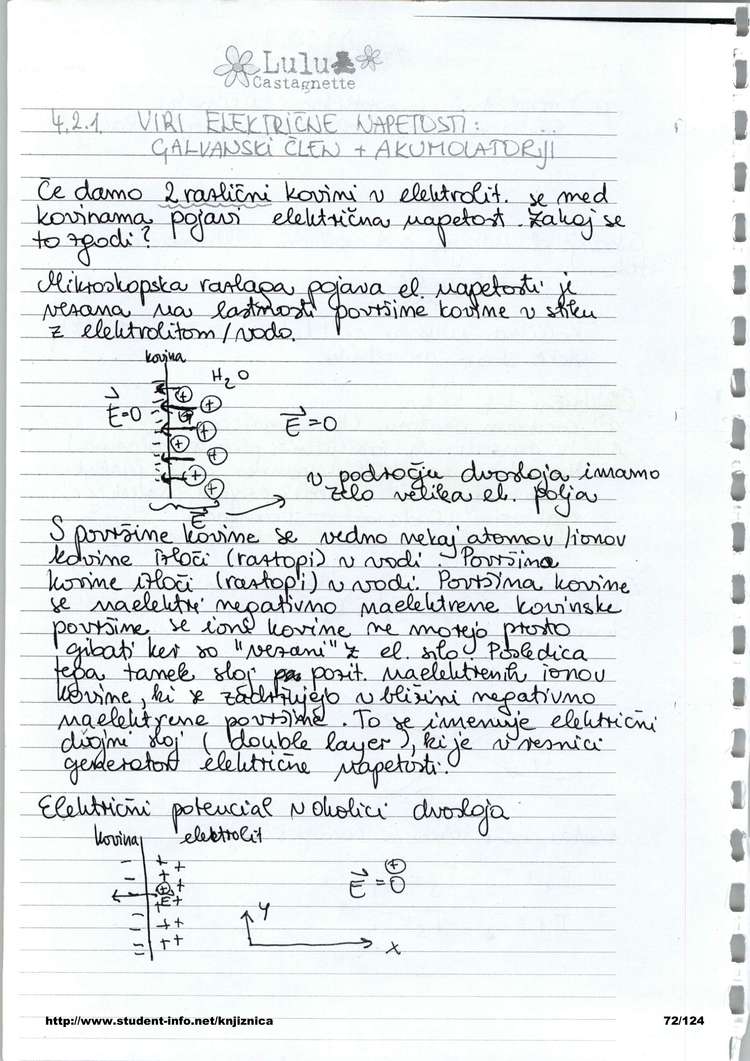 Lulu
Castagnette
4.2.1 VIRI ELEKTRIČNE NAPETOSTI:
GALVANSKI ČLEN + AKUMOLATORIJI
Če damo 2 različni kovini v elektrolit. se med
kovinama pojavi električna napetost. Zakaj se
to zgodi?
Mikroskopska razlaga pojava el. napetosti je
vezana na lastnosti površine kovine v stiku
z elektrolitom/vodo.
kovina
H2O
E=0
E=0
v področju dvosloja imamo
zelo velika el. polja
E
S površine kovine se vedno nekaj atomov/ionov
kovine izloči (raztopi) v vodi. Površina
kovine izloči (raztopi) v vodi. Površina kovine
se naelektri negativno naelektrene kovinske
površine se ioni kovine ne morejo prosto
gibati ker so "vezani" z el. silo. Posledica
tega tanek sloj pozit. naelektrenih ionov
kovine, ki se zadržujejo v bližini negativno
naelektrene površine. To se imenuje električni
dvojni sloj (double layer), ki je v resnici
generator električne napetosti.
Električni potencial v okolici dvosloja
kovina elektrolit
E
E=0
y
x
http://www.student-info.net/knjiznica 72/124